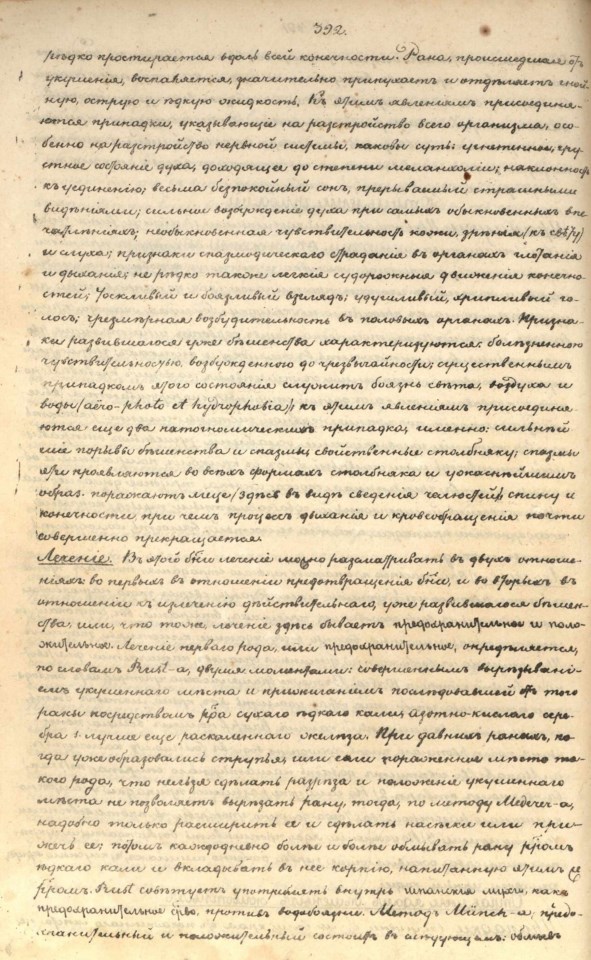 392.
рѣдко простирается вдоль всей конечности. Рана, происшедшая отъ
укушенія, воспаляется, значительно припухаетъ и отдѣляетъ гной-
ную, острую и ѣдкую жидкость. Къ этимъ явленіямъ присоединя-
ются припадки, указывающіе на разстройство всего организма, осо-
бенно на разстройство нервной системы, каковы суть: угнетенное, гру-
стное состояніе духа, доходящее до степени меланхоліи; наклонность
къ уединенію; весьма безпокойный сонъ, прерываемый страшными
видѣніями; сильное возбужденіе духа при самыхъ обыкновенныхъ впе-
чатлѣніяхъ; необыкновенная чувствительность кожи, зрѣнія (къ свѣту)
и слуха; признаки спазмодическаго страданія въ органахъ глотанія
и дыханія; не рѣдко также легкія судорожныя движенія конечно-
стей; тоскливый и боязливый взглядъ; удушливый, хрипливый го-
лосъ; чрезмѣрная возбудительность въ половыхъ органахъ. Призна-
ки развившагося уже бѣшенства характеризуются: болѣзненною
чувствительностью, возбужденного до чрезвычайности; существеннымъ
припадкомъ этого состоянія служитъ боязнь свѣта, воздуха и
воды (aëro-photo et hydrophobia); къ этимъ явленіямъ присоединя-
ются еще два патогномическихъ припадка, именно: сильный
шіе порывы бѣшенства и спазмы, свойственные столбняку; спазмы
эти проявляются во всѣхъ формахъ столбняка и ужаснѣйшимъ
образ. поражаютъ лице (здѣсь въ видѣ сведенія челюстей), спину и
конечности, при чемъ процессъ дыханія и кровообращенія почти
совершенно прекращается.
Леченіе. Въ этой бѣи леченіе можно разсматривать въ двухъ отноше-
ніяхъ: во первыхъ въ отношеніи предотвращенія бѣи, и во вторыхъ въ
отношеніи къ излеченію дѣйствительнаго, уже развившагося бѣшен-
ства; или, что тоже, леченіе здѣсь бываетъ предохранительное и поло-
жительное. Леченіе перваго рода, или предохранительное, опредѣляется,
по словамъ Rust-а, двумя моментами: совершеннымъ вырѣзывані-
емъ укушеннаго мѣста и прижиганіемъ послѣдовавшей отъ того
раны посредствомъ рра сухаго ѣдкаго кали, азотно-кислаго сере-
бра лучше еще раскаленнаго желѣза. При давнихъ ранахъ, ко-
гда уже образовались струпья, или если пораженное мѣсто та-
кого рода, что нельзя сдѣлать разрѣза и положеніе укушеннаго
мѣста не позволяетъ вырѣзать рану, тогда, по методу
надобно только расширить ее и сдѣлать насѣчки или при-
жечь ее; потомъ каждодневно болѣе и болѣе обмывать рану рромъ
ѣдкаго кали и вкладывать въ нее корпію, напитанную этимъ же
рромъ. Rust совѣтуетъ употреблять внутрь шпанскія мухи, какъ
предохранительное срво, противъ водобоязни. Методъ Münch-а, предо-
хранительный и положительный состоитъ въ слѣдующемъ: